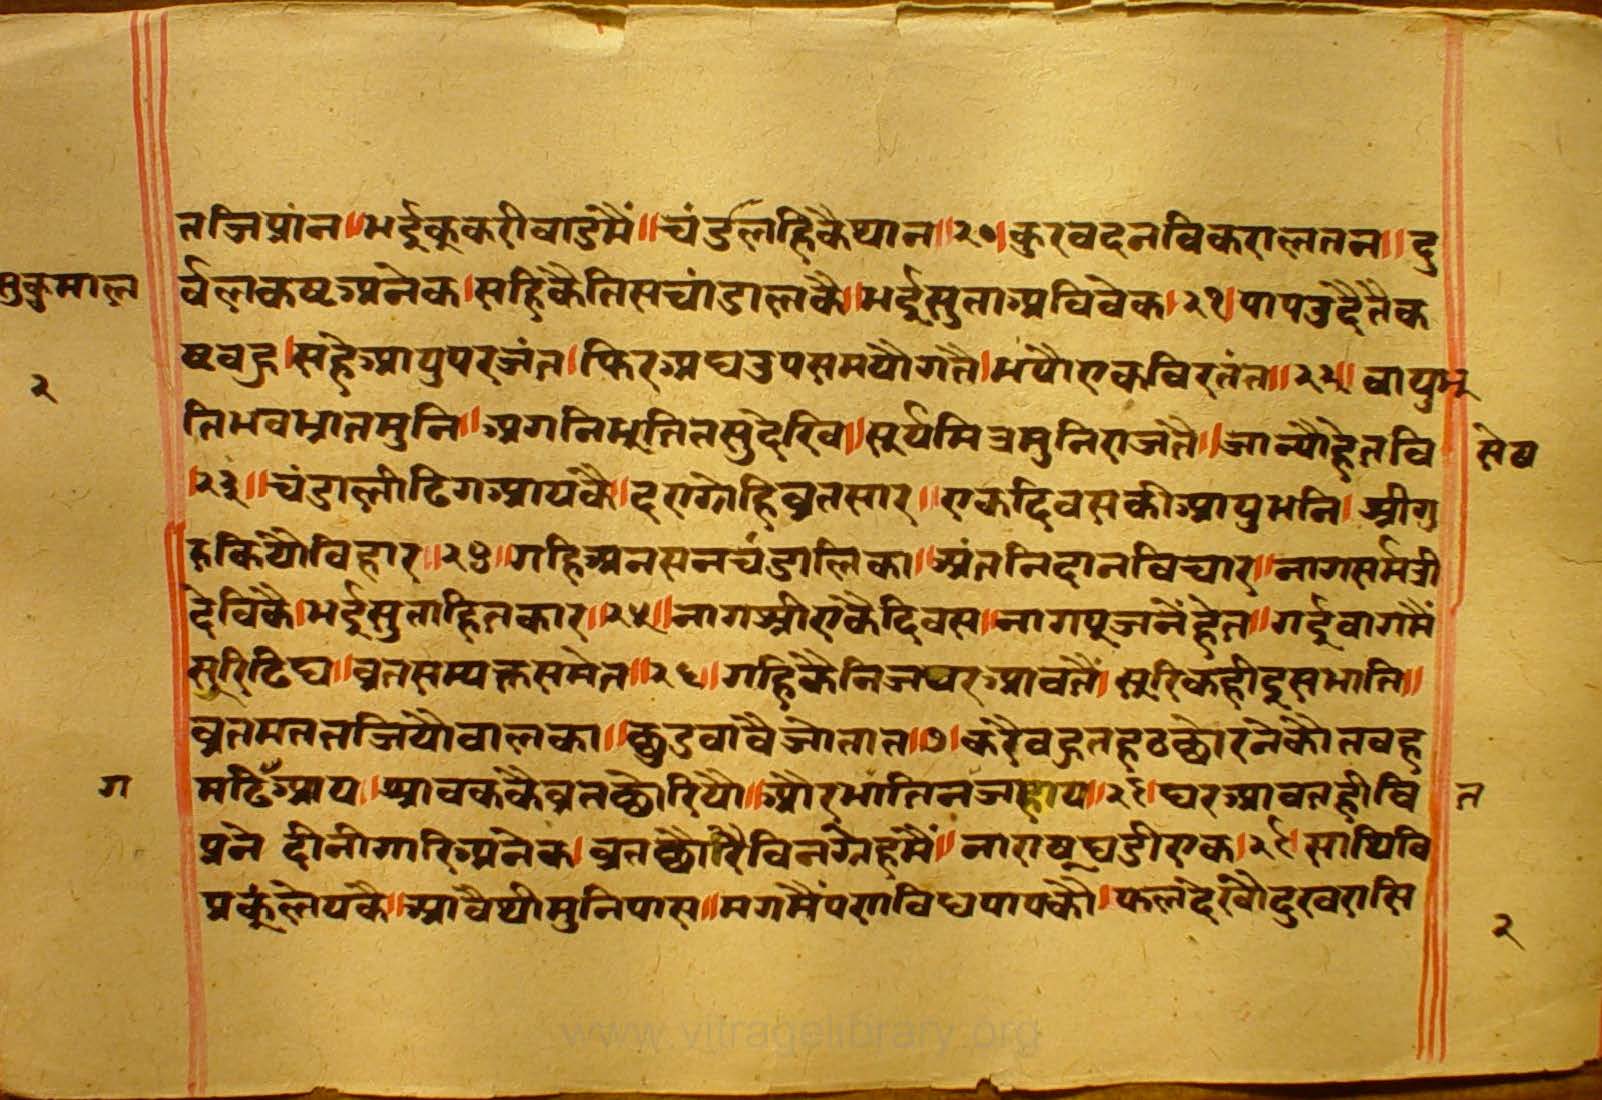 तजिप्रांन॥भईकूकरीवाडमैं॥चंडालहिकैथान॥२०।कुरवदनविकरालतन॥दु
सुकुमाल
र्वलकष्टअनेक।सहिकैतिसचांडालकै॥भईसुताअविवेक।२१।पापउदैतैक
ष्टवहु।सहैआयुपरजंत।फिरअघउपसमयौगतै।भंयौएकविरतंत॥२२॥वायुभू
२
तिभवभ्रातमुनि॥अगनिभूतितसुदेखि॥सूर्यमित्रमुनिराजतै॥जान्यौहेतवि
सेष
।२३॥चंडालीढिगआयकै॥दएगोहिव्रतसार॥एकदिवसकीआयुभनि।श्रीगु
रुकियौविहार॥२४॥गहिअनसनचंडालिका॥अंतनिदानविचार॥नागसर्मत्री
देविकै।भईसुताहितकार॥२५॥नागश्रीएकैदिवस॥नागपूजनैंहेत॥गईवागमैं
सूरिढिघ॥व्रतसम्यक्तसमेत॥२६॥गहिकैनिजघरआवतैं।सूरिकहीदुसभाति॥
व्रतमततजियौवालका॥छुडवावैजोतात॥७।करैवहुतहठछोरनेकौतवह
मढिंआय।श्रावककैव्रतछोरियौ॥औरभांतिनजाहाय॥२८।घरआवतहीवि
ग
त
प्रने दीनीगारिअनेक।व्रतछौरैविनग्रेहमैं॥नाराषूघडीएक।२९।साथिवि
प्रकूंलेयकै॥आवैथीमुनिपास॥मगमैंपराविधपापकौ।फलदेखौदुखरासि
२